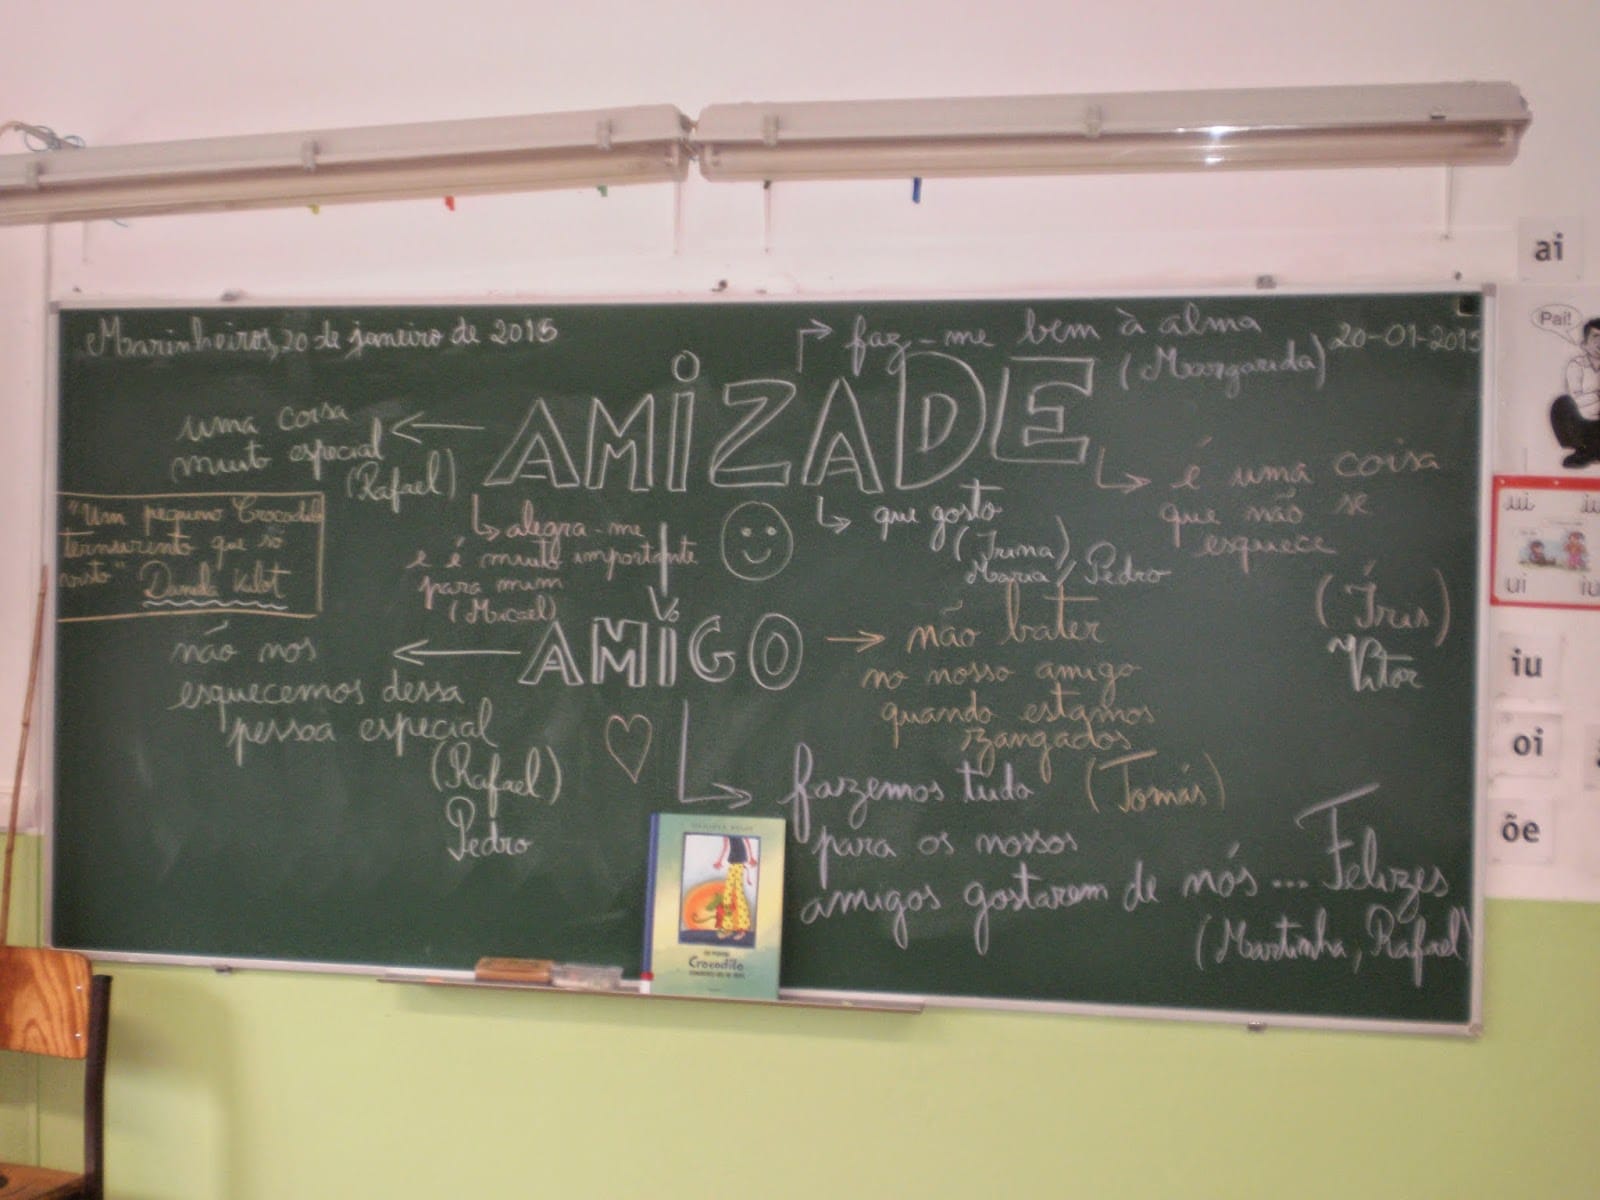 Marinheiros, 20 de janeiro de 2015
faz-me bem à alma
(Margarida)
20-01-2015
AMIZADE
uma coisa
muito especial
(Rafael)
"Um pequeno Crocodilo
ternurento que só
visto" Daniela Kulot
alegra-me
e é muito importante
para mim
(Micael)
que gosto
(Irina)
Maria, Pedro
é uma coisa
que não se
esquece
(Íris)
Vítor
AMIGO
não nos
esquecemos dessa
pessoa especial
(Rafael)
Pedro
não bater
no nosso amigo
quando estamos
zangados
(Tomás)
fazemos tudo
para os nossos
amigos gostarem de nós... Felizes
(Martinha, Rafael)
Crocodilo
ai
Pai!
ui
iu
ui
iu
iu
oi
õe